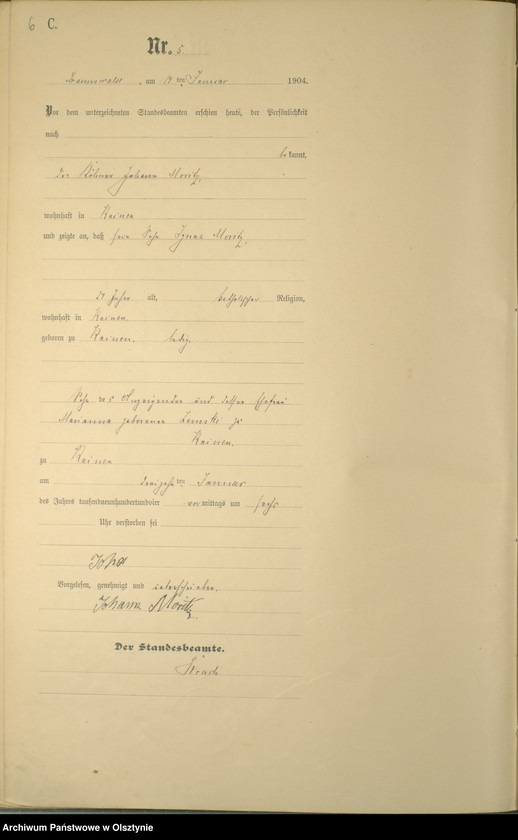 6 C.
Nr. 5.
am ten Januar 1904.
Vor dem unterzeichneten Standesbeamten erschien heute, der Persönlichkeit
nach
bekannt,
der Johann Moritz,
wohnhaft in Rainen
und zeigte an, daß sein Sohn Ignaz Moritz,
Jahre alt, katholischer Religion,
wohnhaft in Rainen
geboren zu Rainen, ledig
Sohn des Anzeigenden und dessen Ehefrau
Marianna geborenen zu
Rainen,
zu Rainen
am ten Januar
des Jahres tausendneunhundertundvier vormittags um sechs
Uhr verstorben sei
Vorgelesen, genehmigt und unterschrieben.
Johann Moritz
Der Standesbeamte.
Archiwum Państwowe w Olsztynie